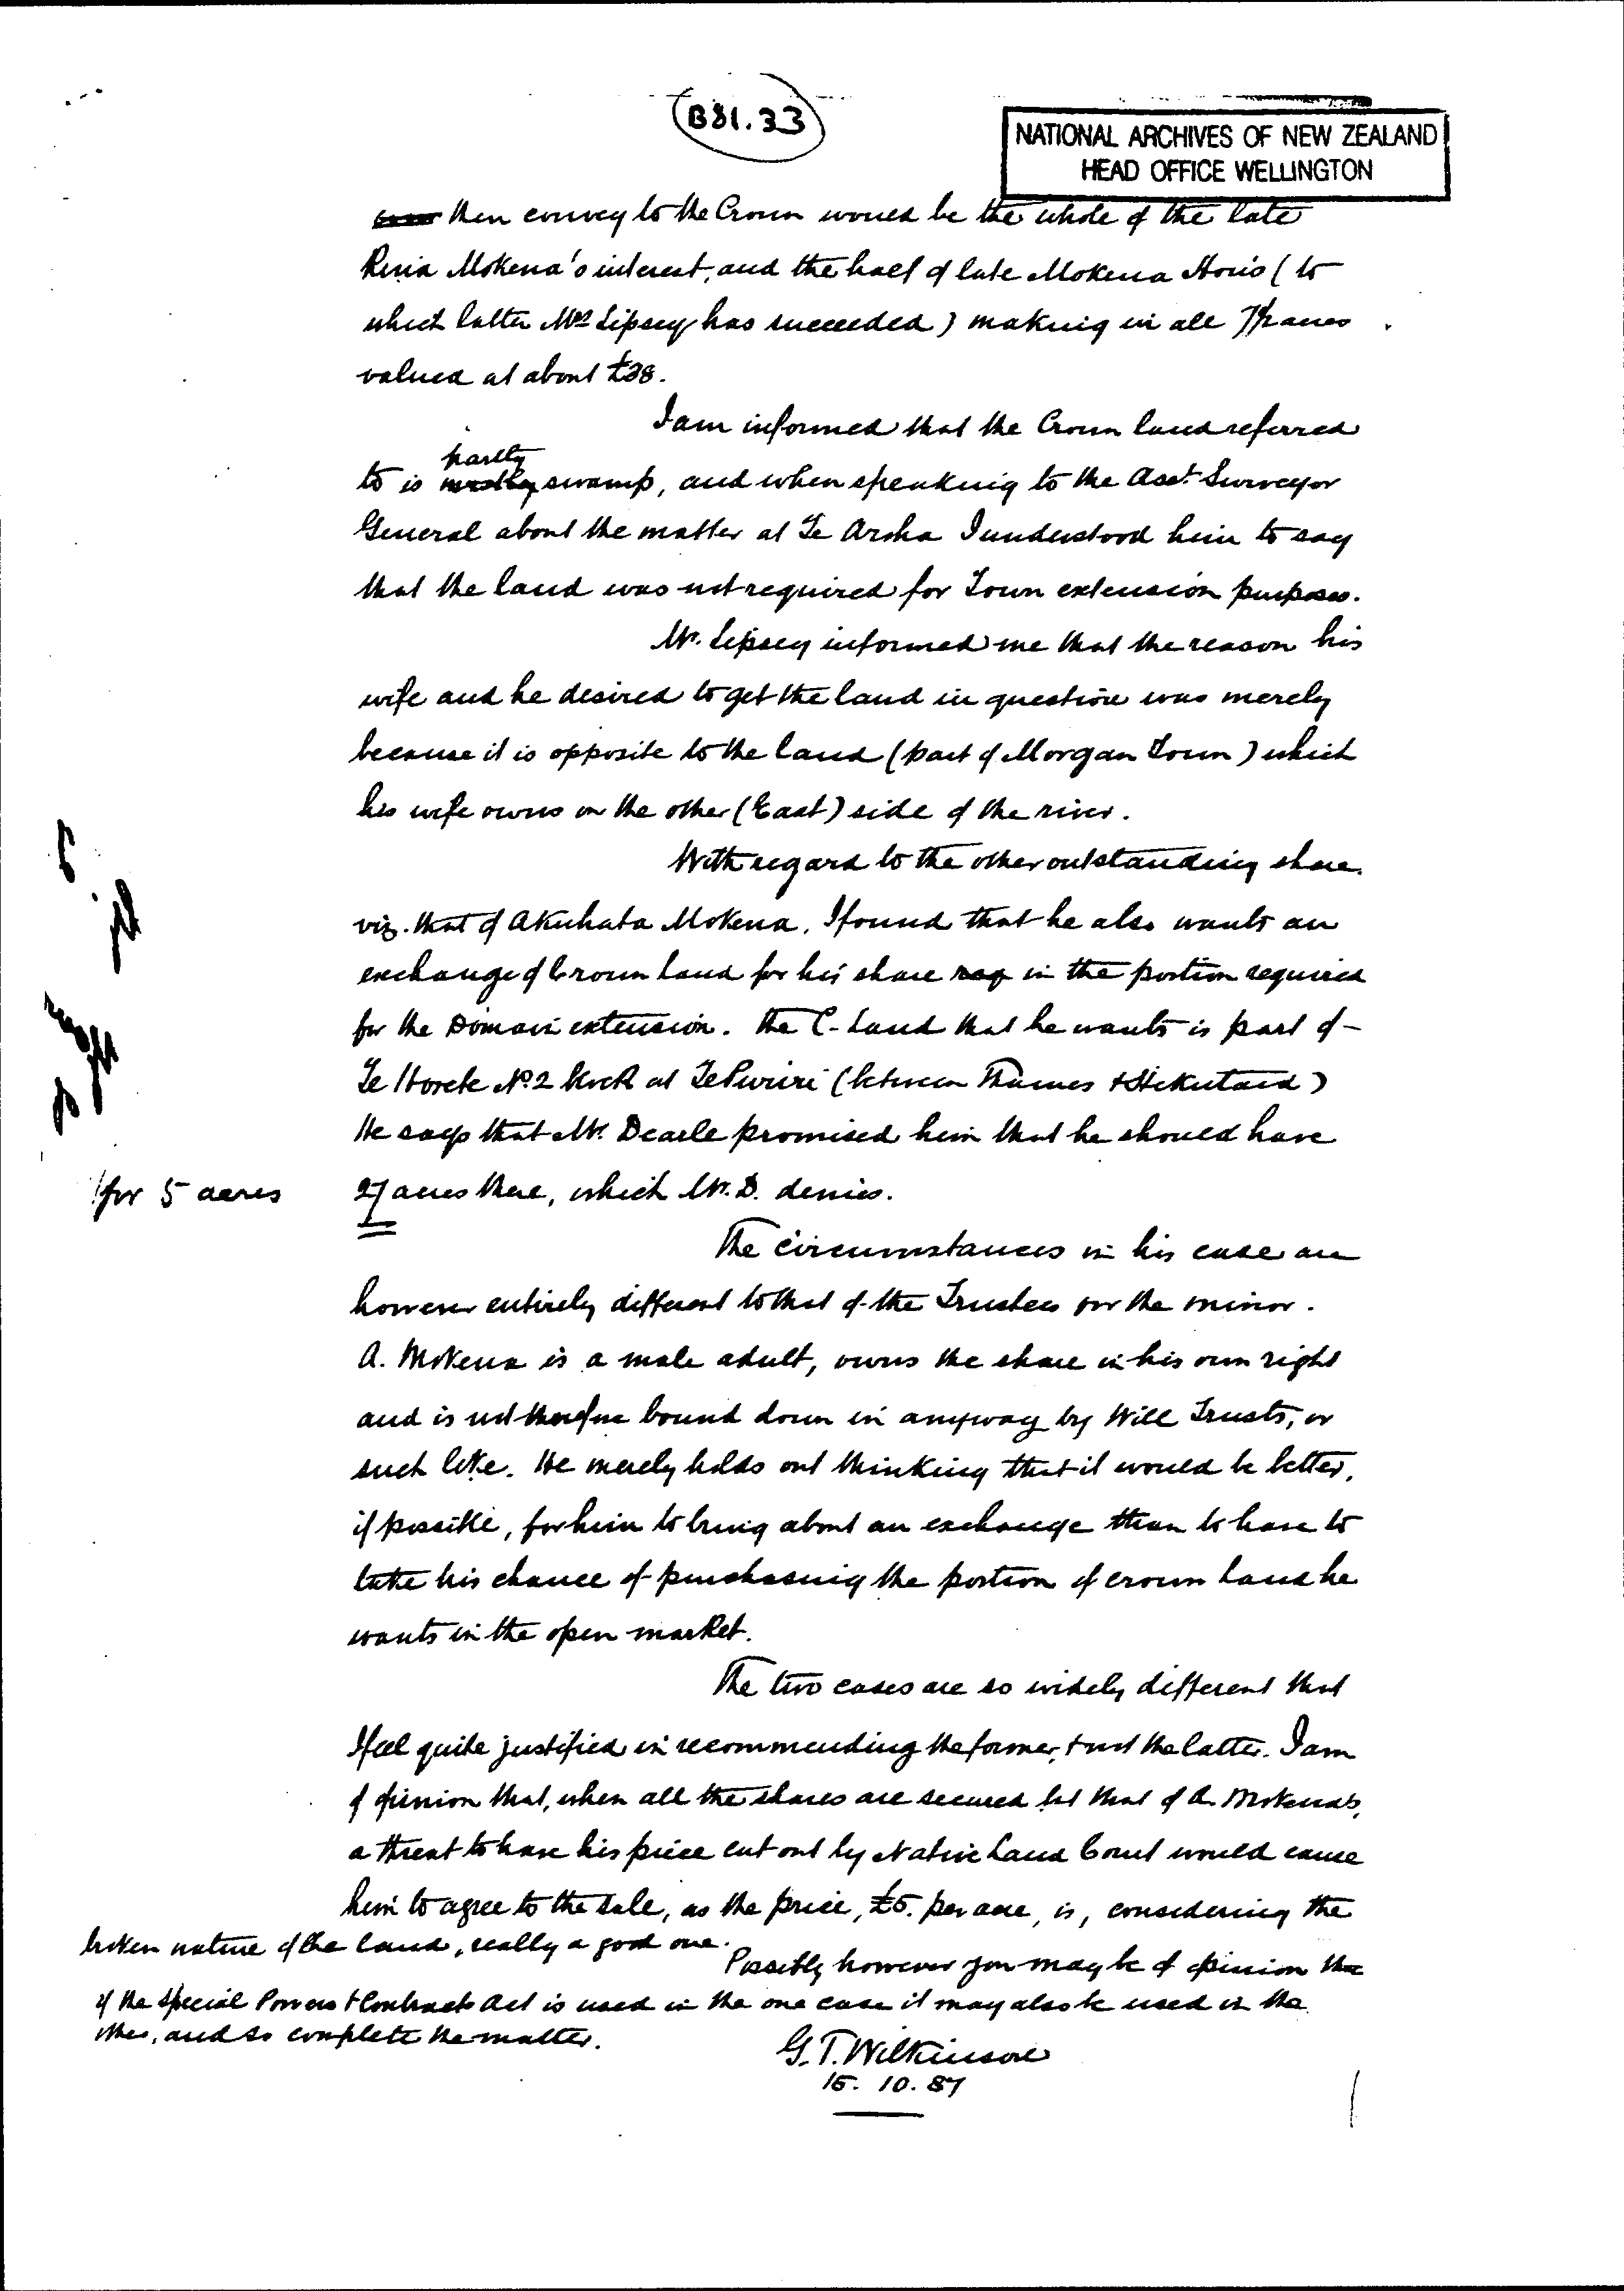 B81.33
NATIONAL ARCHIVES OF NEW ZEALAND
HEAD OFFICE WELLINGTON
then convey to the Crown would be the whole of the late
Ruia Mokena's interest, and the half of late Mokena Hou's (to
which latter Mrs Lipsey has succeeded) making in all 7½ acres
valued at about £38.
I am informed that the Crown land referred
partly
to is mostly swamp, and when speaking to the Asst. Surveyor
General about the matter at Te Aroha I understood him to say
that the land was not required for Town extension purposes.
Mr. Lipsey informed me that the reason his
wife and he desired to get the land in question was merely
because it is opposite to the land (part of Morgan Town) which
his wife owns on the other (East) side of the river.
With regard to the other outstanding share
viz. that of Akuhata Mokena, I found that he also wants an
exchange of Crown land for his share req in the portion required
for the Domain extension. The C. Land that he wants is part of
Te Horete No. 2 block at Te Puriri (between Thames & Hikutaia)
He says that Mr. Dearle promised him that he should have
for 5 acres
27 acres there, which Mr. D. denies.
The circumstances in his case are
however entirely different to that of the Trustees for the minor.
A. Mokena is a male adult, owns the share in his own right
and is not therefore bound down in anyway by Will Trusts, or
such like. He merely holds out thinking that it would be better,
if possible, for him to bring about an exchange than to have to
take his chance of purchasing the portion of crown land he
wants in the open market.
The two cases are so widely different that
I feel quite justified in recommending the former, & not the latter. I am
of opinion that, when all the shares are secured but that of A. Mokena's,
a threat to have his piece cut out by Native Land Court would cause
him to agree to the sale, as the price, £5. per acre, is, considering the
broken nature of the land, really a good one.
Possibly however you may be of opinion that
if the Special Powers & Contracts Act is used in the one case it may also be used in the
other, and so complete the matter.
G. T. Wilkinson
15. 10. 87